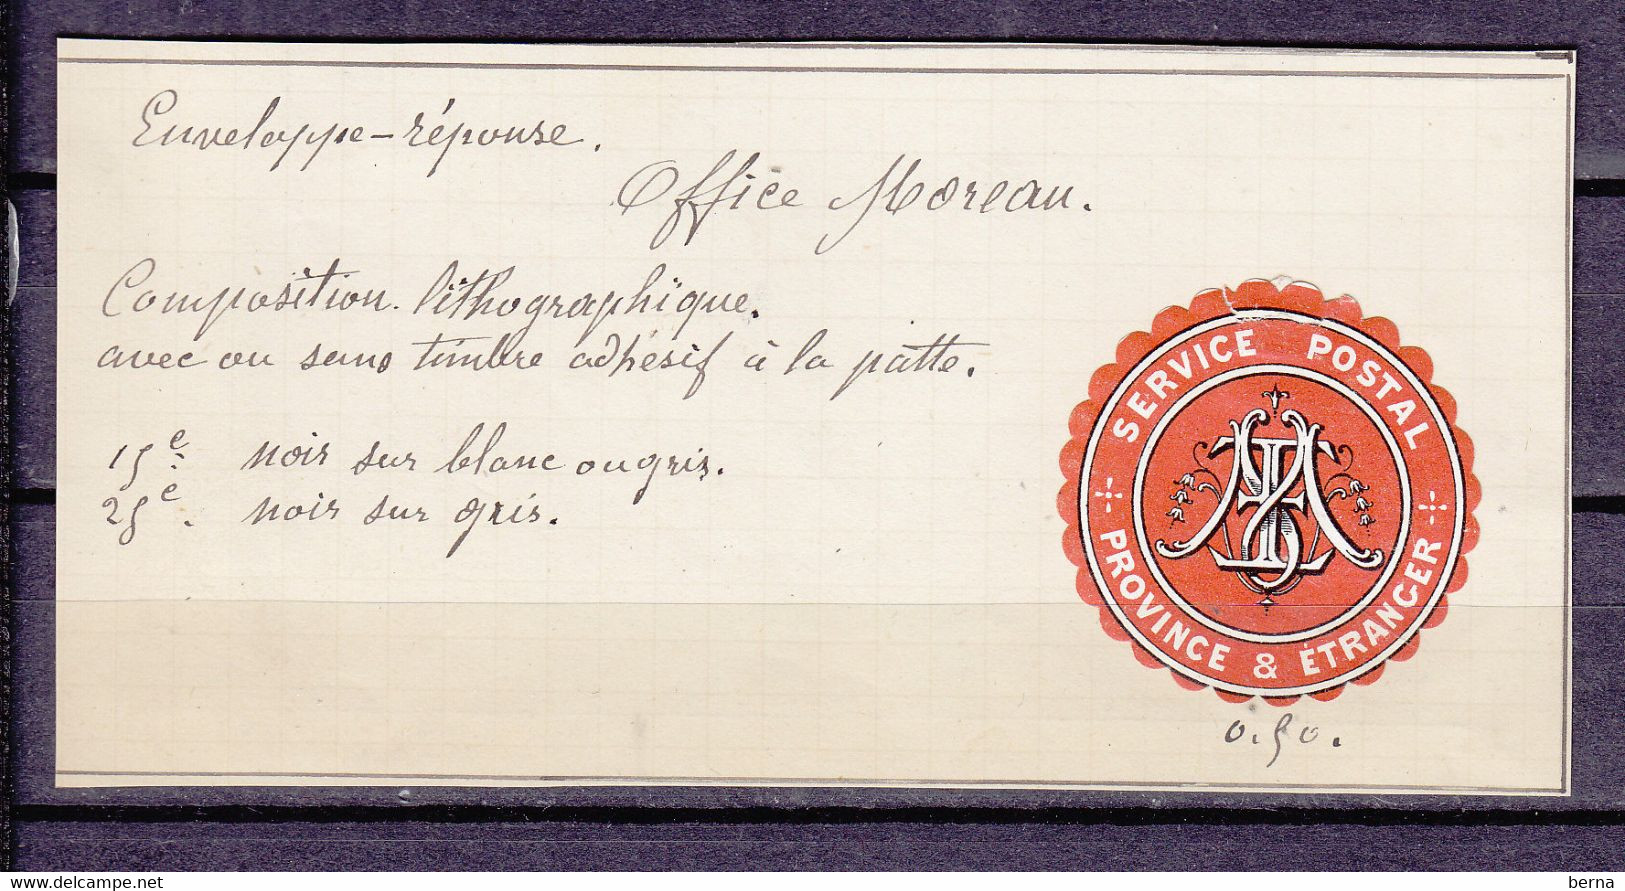 Enveloppe-réponse.
Office Moreau.
Composition lithographique.
avec ou sans timbre adhésif à la patte.
15e. noir sur blanc ou gris.
25e. noir sur gris.
SERVICE POSTAL
PROVINCE & ÉTRANGER
0.50.
www.delcampe.net
berna